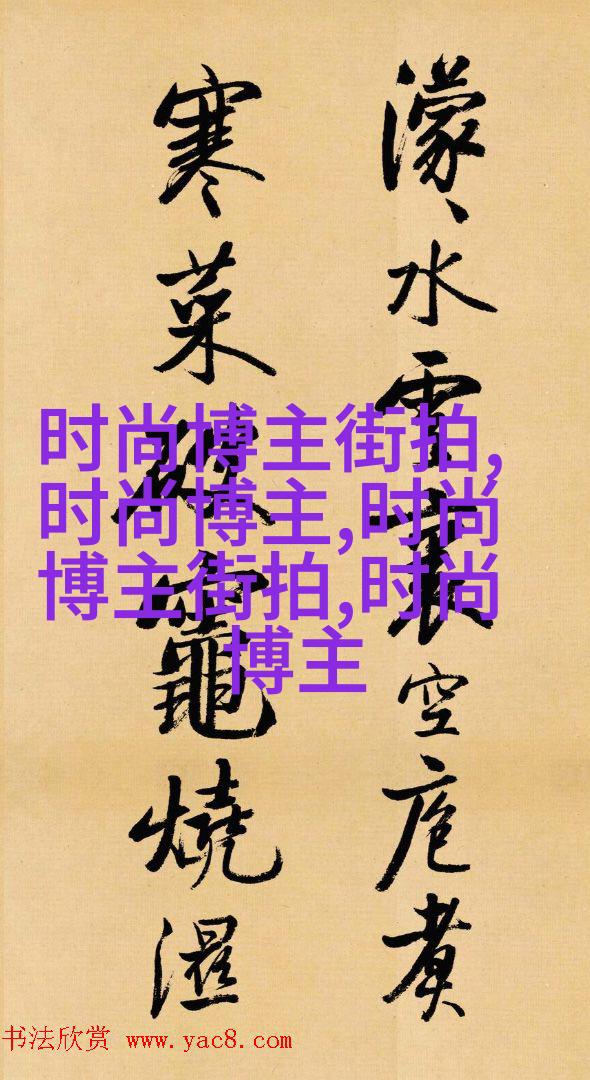 濛〻水雲裏空庖煮
寒菜破竈燒濕
时尚博主街拍,
时尚博主,时尚
博主街拍,时尚
博主
书法欣赏 www.yac8.com